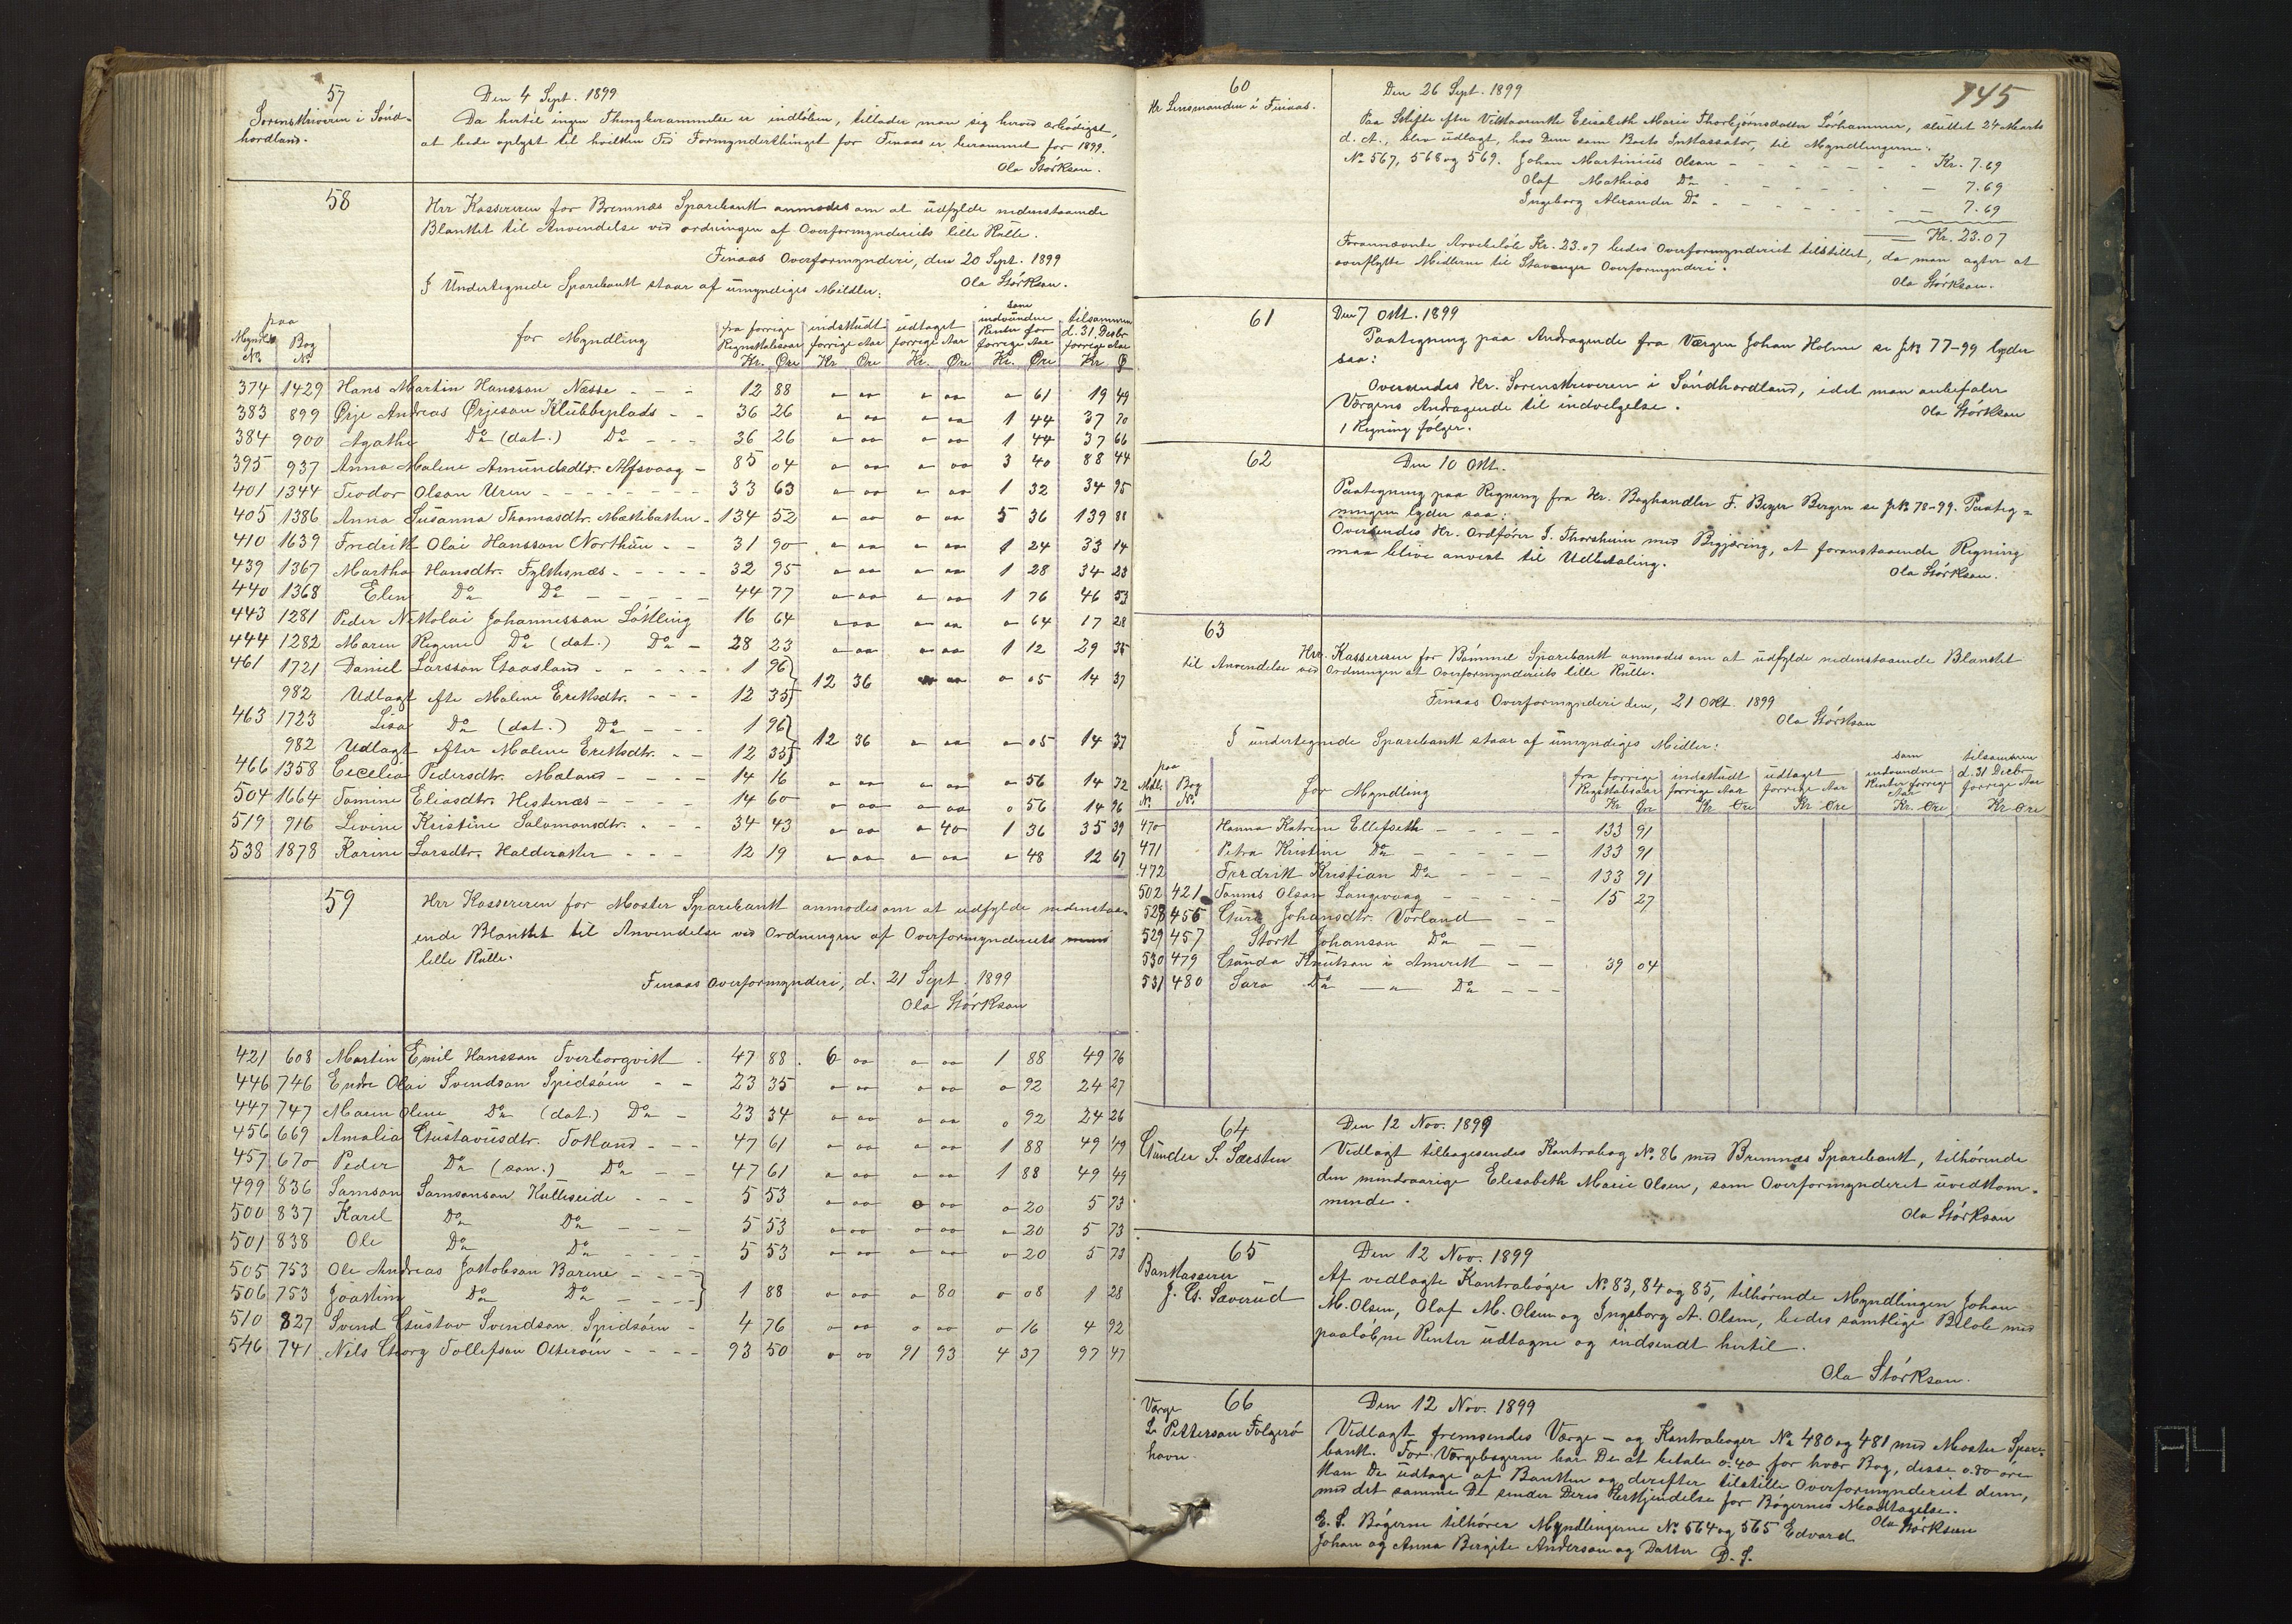 57
Den 4 Sept. 1899
Sorenskriveren i Sönd-
hordland.
Da hertil ingen Thingberammelse er indlöben, tillader man sig herved ærbödigst,
at bede oplyst til hvilken Tid Formynderthinget for Finaas er berammet for 1899.
Ola Störkson.
58
Hrr Kassereren for Bremnæs Sparebank anmodes om at udfylde nedenstaaende
Blanket til Anvendelse ved ordningen af Overformynderiets lille Rulle.
Finaas Overformynderi, den 20 Sept. 1899
Ola Störkson.
I Undertegnede Sparebank staar af umyndiges Midler:
paa
Myndl. No. Bog No. for Myndling fra forrige Regnskabsaar Kr. Øre indskudt forrige Aar Kr Øre udtaget forrige Aar Kr. Øre som indvundne Renter for forrige Aar Kr. Øre tilsammen d. 31 Decbr forrige Aar Kr Ø
374 1429 Hans Martin Hansson Næsse - - - 12 88 " "" " "" " 61 19 49
383 899 Ørje Andreas Ørjeson Klubbeplads - - 36 26 " "" " "" 1 44 37 70
384 900 Agathe Do (dat.) Do - - - 36 26 " "" " "" 1 44 37 66
395 937 Anna Malene Amundsdtr. Alfsvaag - 85 04 " "" " "" 3 40 88 44
401 1344 Teodor Olson Uren - - - - - - 33 63 " "" " "" 1 32 34 95
405 1386 Anna Susanna Thomasdtr. Mækkibakken - 134 52 " "" " "" 5 36 139 88
410 1639 Fredrik Olai Hansson Northun - - 31 90 " "" " "" 1 24 33 14
439 1367 Martha Hansdtr. Fylkesnæs - - - - 32 95 " "" " "" 1 28 34 23
440 1368 Elen Do Do - - - - - 44 77 " "" " "" 1 76 46 53
443 1281 Peder Nikolai Johannesson Lökling 16 64 " "" " "" " 64 17 28
444 1282 Maren Regine Do (dat.) Do - 28 23 " "" " "" 1 12 29 35
461 1721 Daniel Larsson Gaasland - - - - - 1 96
982 Udlagt efte Malene Eriksdtr. - - - 12 35 } 12 36 " "" " 05 14 37
463 1723 Lisa Do (dat.) Do - - - 1 96
982 Udlagt efter Malene Eriksdtr. - - 12 35 } 12 36 " "" " 05 14 37
466 1358 Cecelia Pedersdtr. Mæland - - - - 14 16 " "" " "" " 56 14 72
504 1664 Tomine Eliasdtr. Hestenæs - - - - 14 60 " "" " "" " 56 14 96
519 916 Levine Kristine Salomonsdtr. - - - 34 43 " "" " 40 1 36 35 39
538 1878 Karine Larsdtr. Halderaker - - - 12 19 " "" " "" " 48 12 67
59
Hrr Kassereren for Moster Sparebank anmodes om at udfylde nedenstaa-
ende Blanket til Anvendelse ved Ordningen af Overformynderiets
lille Rulle.
Finaas Overformynderi, d. 21 Sept. 1899
Ola Störkson
421 608 Martin Emil Hansson Tverborgvik - 47 88 6 "" " "" 1 88 49 76
446 746 Endre Olai Svendson Spidsöen - - 23 35 " "" " "" " 92 24 27
447 747 Maren Oline Do (dat.) Do - 23 34 " "" " "" " 92 24 26
456 669 Amalia Gustavusdtr. Totland - - - 47 61 " "" " "" 1 88 49 49
457 670 Peder Do (son.) Do - - 47 61 " "" " "" 1 88 49 49
499 836 Samson Samsonson Kulleseide - - - 5 53 " "" " "" " 20 5 73
500 837 Karel Do Do - - - 5 53 " "" " "" " 20 5 73
501 838 Ole Do Do - - - - 5 53 " "" " "" " 20 5 73
505 753 Ole Andreas Jakobson Barene - - - -
506 753 Joakim Do Do - - - - } 1 88 " "" " 80 " 08 1 28
510 827 Svend Gustav Svendson Spidsöen - 4 76 " "" " "" " 16 4 92
546 741 Nils Georg Tollefson Otteröen - - - - 93 50 " "" 91 93 4 37 97 47
745
60
Den 26 Sept. 1899
Hr Lensmanden i Finaas.
Paa Skifte efter Vilkaarenke Elisabeth Marie Thorbjörnsdatter Lörhammer, sluttet 24 Marts
d. A., blev udlagt, hos Dem som Boets Inkassator, til Myndlingerne:
No 567, 568 og 569. Johan Martinius Olson - - - - Kr. 7.69
Olaf Mathias Do - - - - - - 7.69
Ingeborg Alexander Do - - - - - - 7.69
Kr. 23.07
Forannævnte Arvebelöb Kr. 23.07 bedes Overformynderiet tilstillet, da man agter at
overflytte Midlerne til Stavanger Overformynderi.
Ola Störkson.
61
Den 7 Okt. 1899
Paategning paa Andragende fra Værgen Johan Holme se JNo 77-99 lyder
saa:
Oversendes Hr. Sorenskriveren i Söndhordland, idet man anbefaler
Værgens Andragende til indvelgelse.
Ola Störkson
1 Regning fölger.
62
Den 10 Okt.
Paategning paa Regning fra Hr. Boghandler F. Beyer Bergen se JNo 78-99. Paateg-
ningen lyder saa:
Oversendes Hr. Ordförer I. Thorsheim med Begjæring, at foranstaaende Regning
maa blive anvist til Udbetaling.
Ola Störkson.
63
Hrr. Kassereren for Bömmel Sparebank anmodes om at udfylde nedenstaaende Blanket
til Anvendelse ved Ordningen af Overformynderiets lille Rulle.
Finaas Overformynderi den, 21 Okt. 1899
Ola Störkson
I undertegnede Sparebank staar af umyndiges Midler:
paa
No. Bog No. for Myndling fra forrige Regnskabsaar Kr Øre indskudt forrige Aar Kr Øre udtaget forrige Aar Kr Øre som indvundne Renter forrige Aar Kr. Øre tilsammen d. 31 Decbr forrige Aar Kr Øre
470 Hanna Katrine Ellefseth - - - - - 133 91
471 Petra Kristine Do - - - - - 133 91
472 Fredrik Kristian Do - - - - 133 91
502 421 Tomms Olson Langevaag - - - - - 15 27
528 456 Guri Johansdtr. Vorland - -
529 457 Stork Johanson Do - -
530 479 Gunda Knutson i Amerik - - 39 04
531 480 Sara Do - " - Do - - -
64
Den 12 Nov. 1899
Gunder S. Særsten
Vedlagt tilbagesendes Kontrabog No. 86 med Bremnæs Sparebank, tilhörende
den mindreaarige Elisabeth Marie Olsen, som Overformynderiet uvedkom-
mende.
Ola Störkson
65
Den 12 Nov. 1899
Bankkasserer
J. G. Sæverud
Af vedlagte Kontraböger No. 83, 84 og 85, tilhörende Myndlingen Johan
M. Olsen, Olaf M. Olsen og Ingeborg A. Olsen, bedes samtlige Belöb med
paalöbne Renter udtagne og indsendt hertil.
Ola Störkson.
66
Den 12 Nov. 1899
Værge
L Petterson Folgerö
havn.
Vedlagt fremsendes Værge- og Kontraboger No 480 og 481 med Moster Spare-
bank. For Værgebogerne har De at betale 0.40 for hver Bog, disse 0.80 öre
kan De udtage af Banken og derefter tilstille Overformynderiet dem,
med det samme De sender Deres Erkjendelse for Bögernes Modtagelse.
Ola Störkson
E. S. Bögerne tilhörer Myndlingerne No. 564 og 565 Edvard
Johan og Anna Birgite Anderson og Datter D. S.